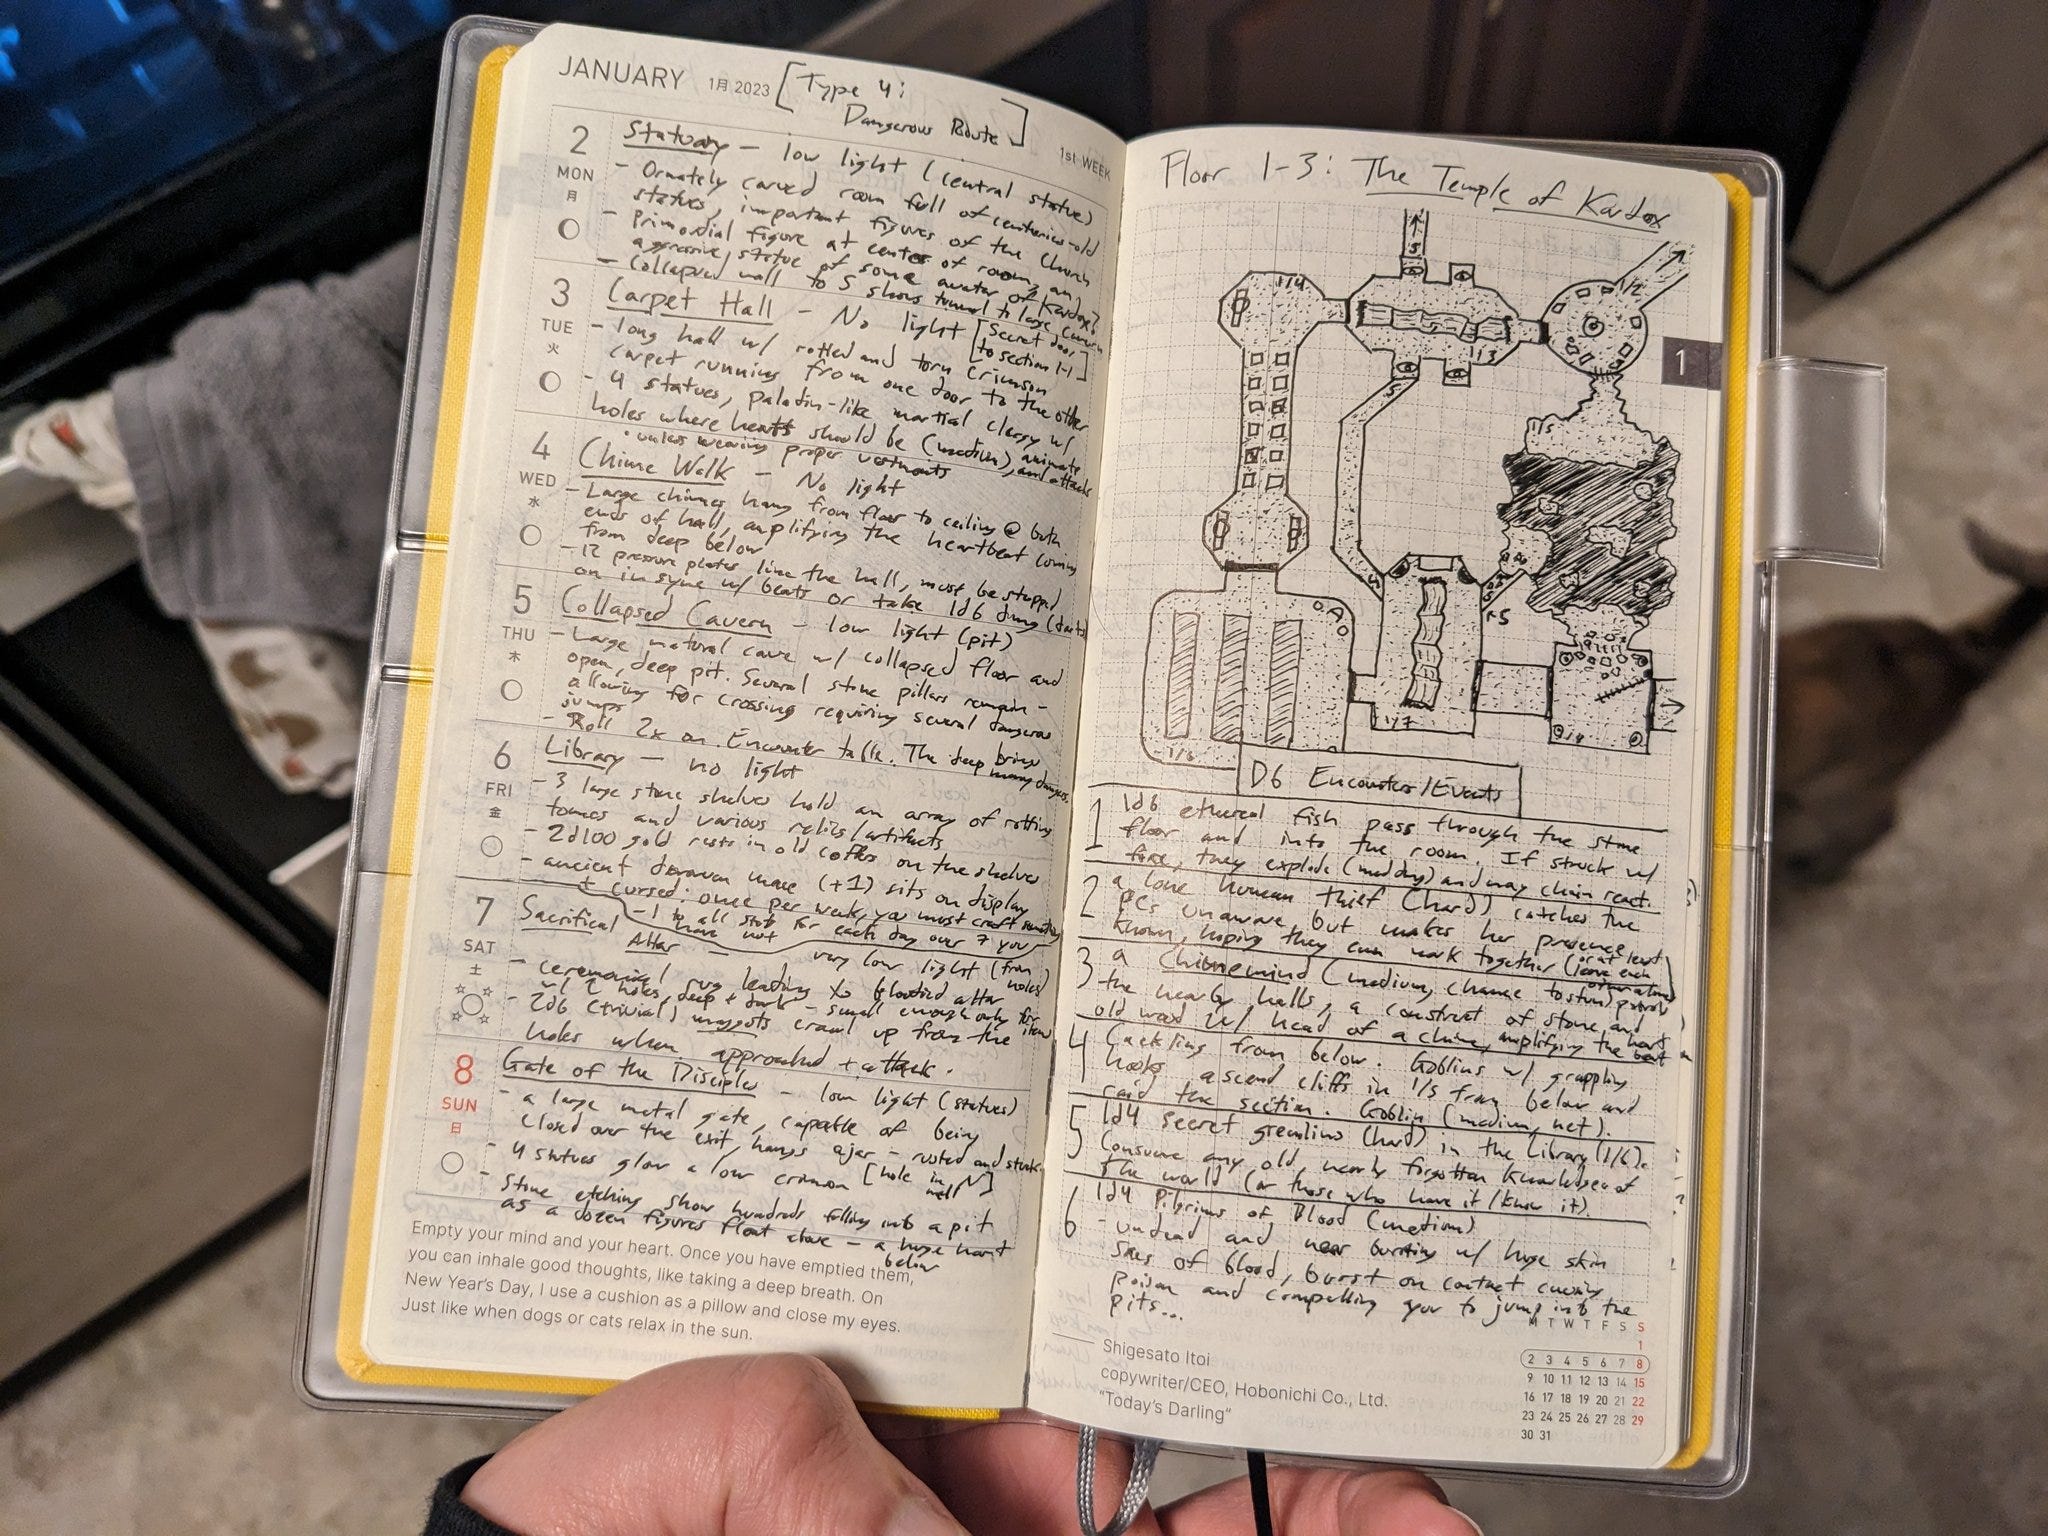 JANUARY 1月 2023 [Type 4:
Dangerous Route]
1st WEEK
2
MON
月
Statuary - low light (central statue)
- Ornately carved room full of centuries-old
statues, important figures of the church
- Primordial figure at center of room, an
aggressive statue of some avatar of Kardox?
- Collapsed wall to S shows tunnel to large cavern
3
TUE
火
Carpet Hall - No light [Secret door
to section 1-1]
- long hall w/ rotted and torn crimson
carpet running from one door to the other
- 4 statues, paladin-like martial clergy w/
holes where hearts should be (medium), animate
and attacks
· unless wearing proper vestments
4
WED
水
Chime Walk - No light
- Large chimes hang from floor to ceiling @ both
ends of hall, amplifying the heartbeat coming
from deep below
- 12 pressure plates line the hall, must be stepped
on in sync w/ beats or take 1d6 dmg (darts)
5
THU
木
Collapsed Cavern - low light (pit)
- Large natural cave w/ collapsed floor and
open, deep pit. Several stone pillars remain -
allowing for crossing requiring several dangerous
jumps
- Roll 2x on Encounter table. The deep brings
many dangers.
6
FRI
金
Library - no light
- 3 large stone shelves hold an array of rotting
tomes and various relics/artifacts
- 2d100 gold rests in old coffers on the shelves
- ancient mace (+1) sits on display
+ cursed: once per week, you must craft something
-1 to all stats for each day over 7 you
have not
7
SAT
土
Sacrificial
Altar - very low light (from
holes)
- ceremonial rug leading to bloodied altar
w/ 2 holes, deep + dark - small enough only for
items
- 2d6 (trivial) maggots crawl up from the
holes when approached + attack.
8
SUN
日
Gate of the Disciples - low light (statues)
- a large metal gate, capable of being
closed over the exit, hangs ajar - rusted and stuck
- 4 statues glow a low crimson [hole in N
wall]
- Stone etching show hundreds falling into a pit
as a dozen figures float above - a huge heart
below
Empty your mind and your heart. Once you have emptied them,
you can inhale good thoughts, like taking a deep breath. On
New Year's Day, I use a cushion as a pillow and close my eyes.
Just like when dogs or cats relax in the sun.
Floor 1-3: The Temple of Kardox
S
1/4
1/2
1/3
S
1/5
S
S
1/7
1/6
1
D6 Encounters/Events
1 1d6 ethereal fish pass through the stone
floor and into the room. If struck w/
fire, they explode (med dmg) and may chain react.
2 a lone human thief (hard) catches the
PCs unaware but makes her presence
known, hoping they can work together (or at least
leave each
other alone)
3 a Chimemind (medium, chance to stun) patrols
the nearby halls, a construct of stone and
old wood w/ head of a chime, amplifying the heart
beat
4 Cackling from below. Goblins w/ grappling
hooks ascend cliffs in 1/5 from below and
raid the section. Goblin (medium, net).
5 1d4 secret gremlins (hard) in the Library (1/6).
Consume any old, nearly forgotten knowledge of
the world (or those who have it/know it).
6 1d4 Pilgrims of Blood (medium)
- undead and near bursting w/ huge skin
sacs of blood, burst on contact causing
poison and compelling you to jump into the
pits...
Shigesato Itoi
copywriter/CEO, Hobonichi Co., Ltd.
"Today's Darling"
M T W T F S S
1
2 3 4 5 6 7 8
9 10 11 12 13 14 15
16 17 18 19 20 21 22
23 24 25 26 27 28 29
30 31